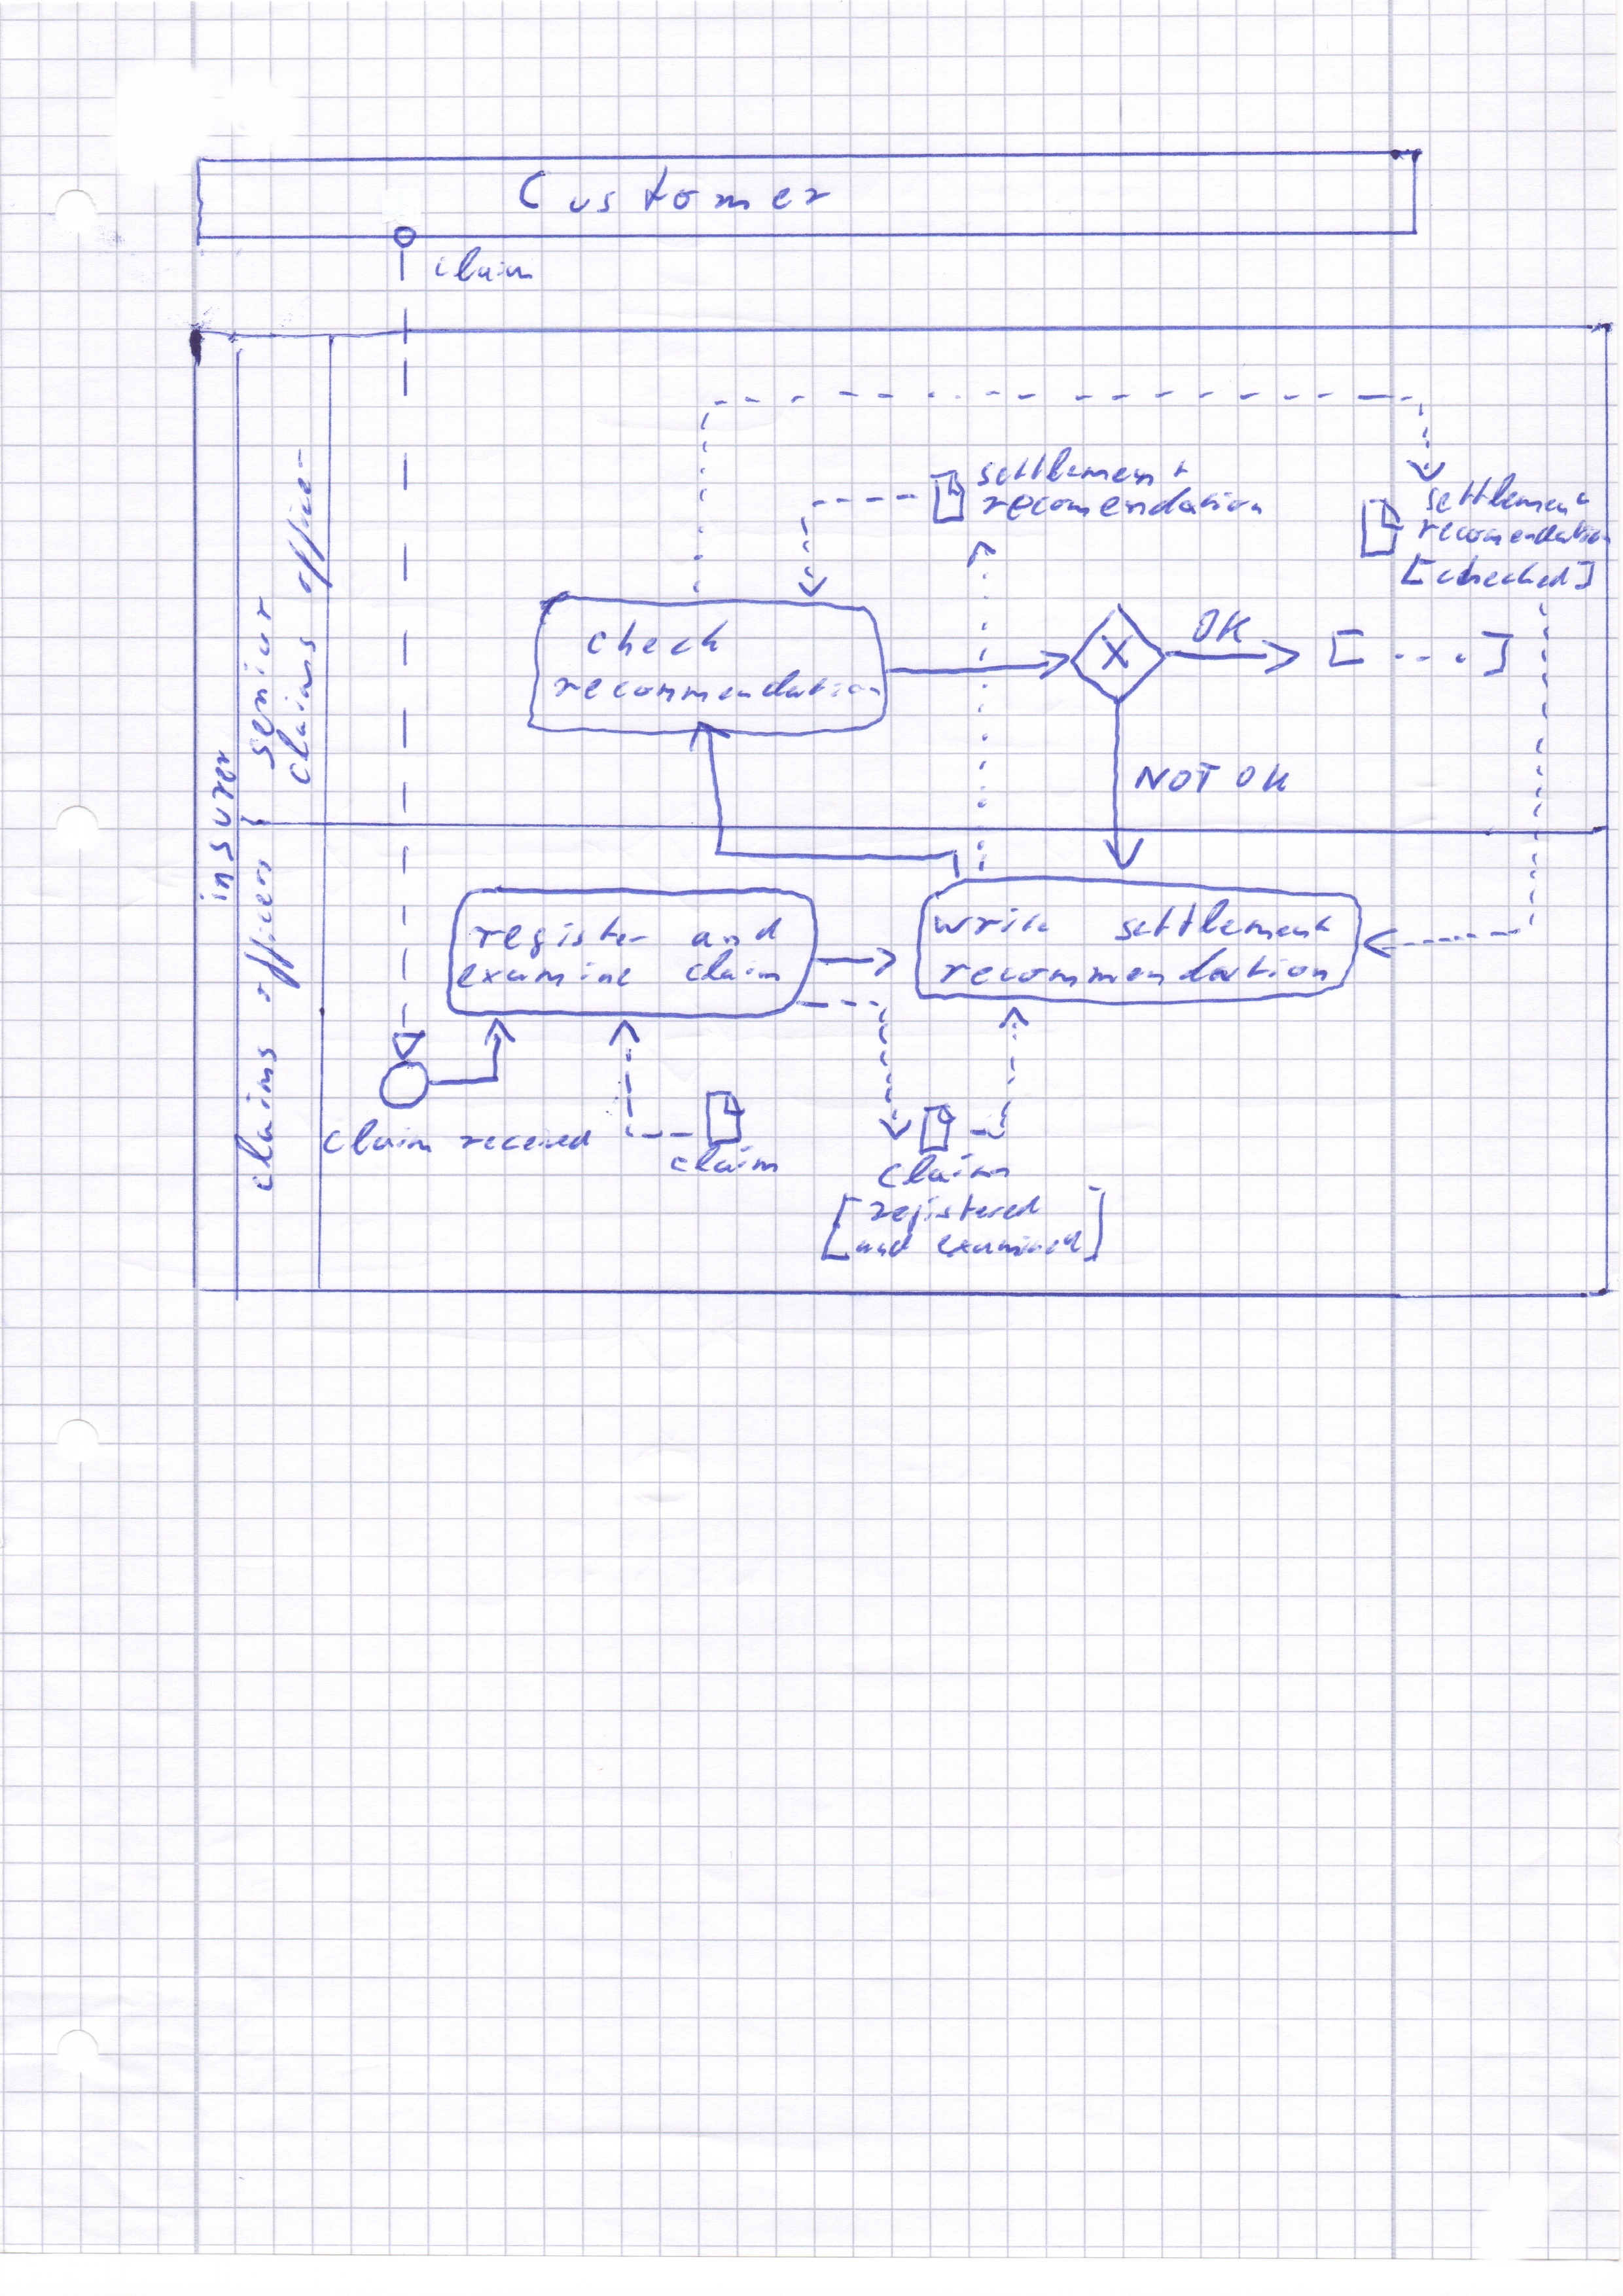 Customer
claim
insurer
senior
claims officer
claims officer
settlement
recomendation
settlement
recomendation
[checked]
check
recommendation
X
OK
[ ... ]
NOT OK
register and
examine claim
write settlement
recommendation
claim received
claim
claim
[registered
and examined]